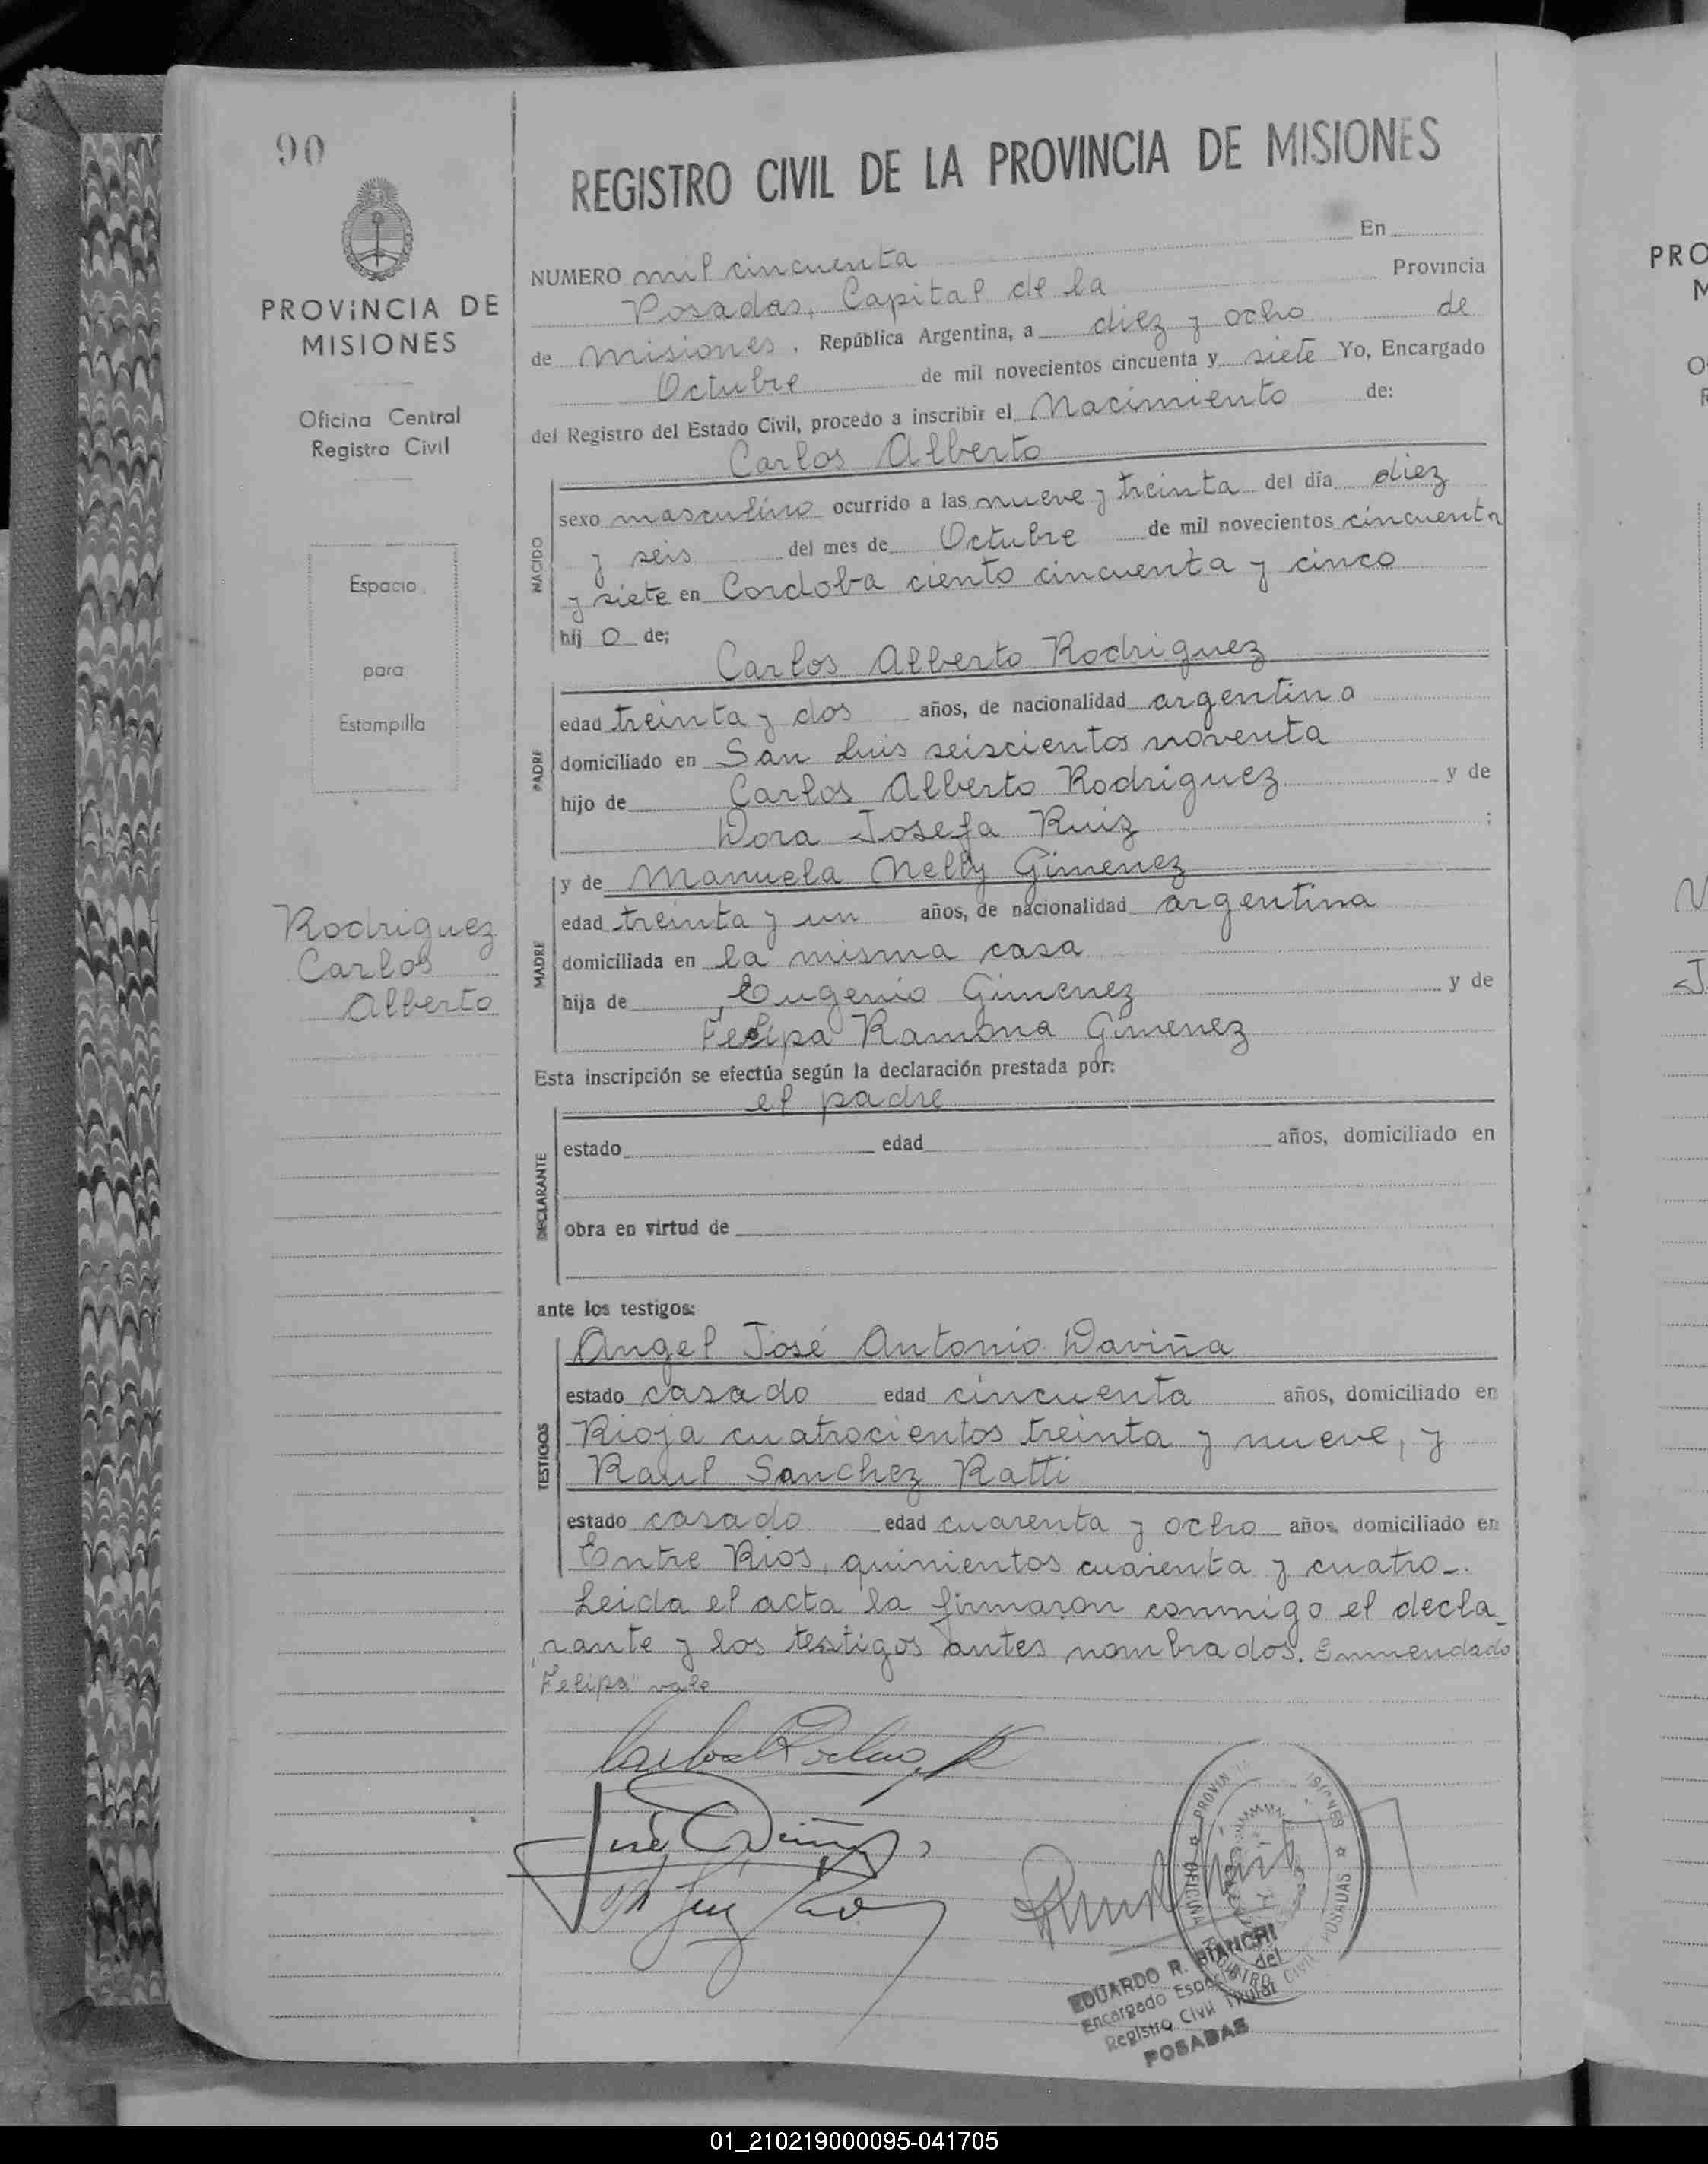 90
PROVINCIA DE
MISIONES
Oficina Central
Registro Civil
Espacio
para
Estampilla
Rodriguez
Carlos
Alberto
REGISTRO CIVIL DE LA PROVINCIA DE MISIONES
NUMERO mil cincuenta En
Posadas, Capital de la Provincia
de Misiones. República Argentina, a diez y ocho de
Octubre de mil novecientos cincuenta y siete Yo, Encargado
del Registro del Estado Civil, procedo a inscribir el Nacimiento de:
Carlos Alberto
NACIDO
sexo masculino ocurrido a las nueve y treinta del día diez
y seis del mes de Octubre de mil novecientos cincuenta
y siete en Cordoba ciento cincuenta y cinco
hij o de;
Carlos Alberto Rodriguez
PADRE
edad treinta y dos años, de nacionalidad argentina
domiciliado en San Luis seiscientos noventa
hijo de Carlos Alberto Rodriguez y de
Dora Josefa Ruiz ;
y de Manuela Nelly Gimenez
MADRE
edad treinta y un años, de nacionalidad argentina
domiciliada en la misma casa
hija de Eugenio Gimenez y de
Felipa Ramona Gimenez
Esta inscripción se efectúa según la declaración prestada por:
el padre
DECLARANTE
estado edad años, domiciliado en
obra en virtud de
ante los testigos:
Angel José Antonio Daviña
TESTIGOS
estado casado edad cincuenta años, domiciliado en
Rioja cuatrocientos treinta y nueve, y
Raul Sanchez Ratti
estado casado edad cuarenta y ocho años, domiciliado en
Entre Rios, quinientos cuarenta y cuatro-.
Leida el acta la firmaron conmigo el decla-
rante y los testigos antes nombrados. Enmendado
"Felipa" vale
PROVIN ISIONES
OFICINA REGISTRO CIVIL POSADAS
EDUARDO R. BIANCHI
Encargado Especial del
Registro Civil Titular
POSADAS
PRO
M
O
R
01_210219000095-041705